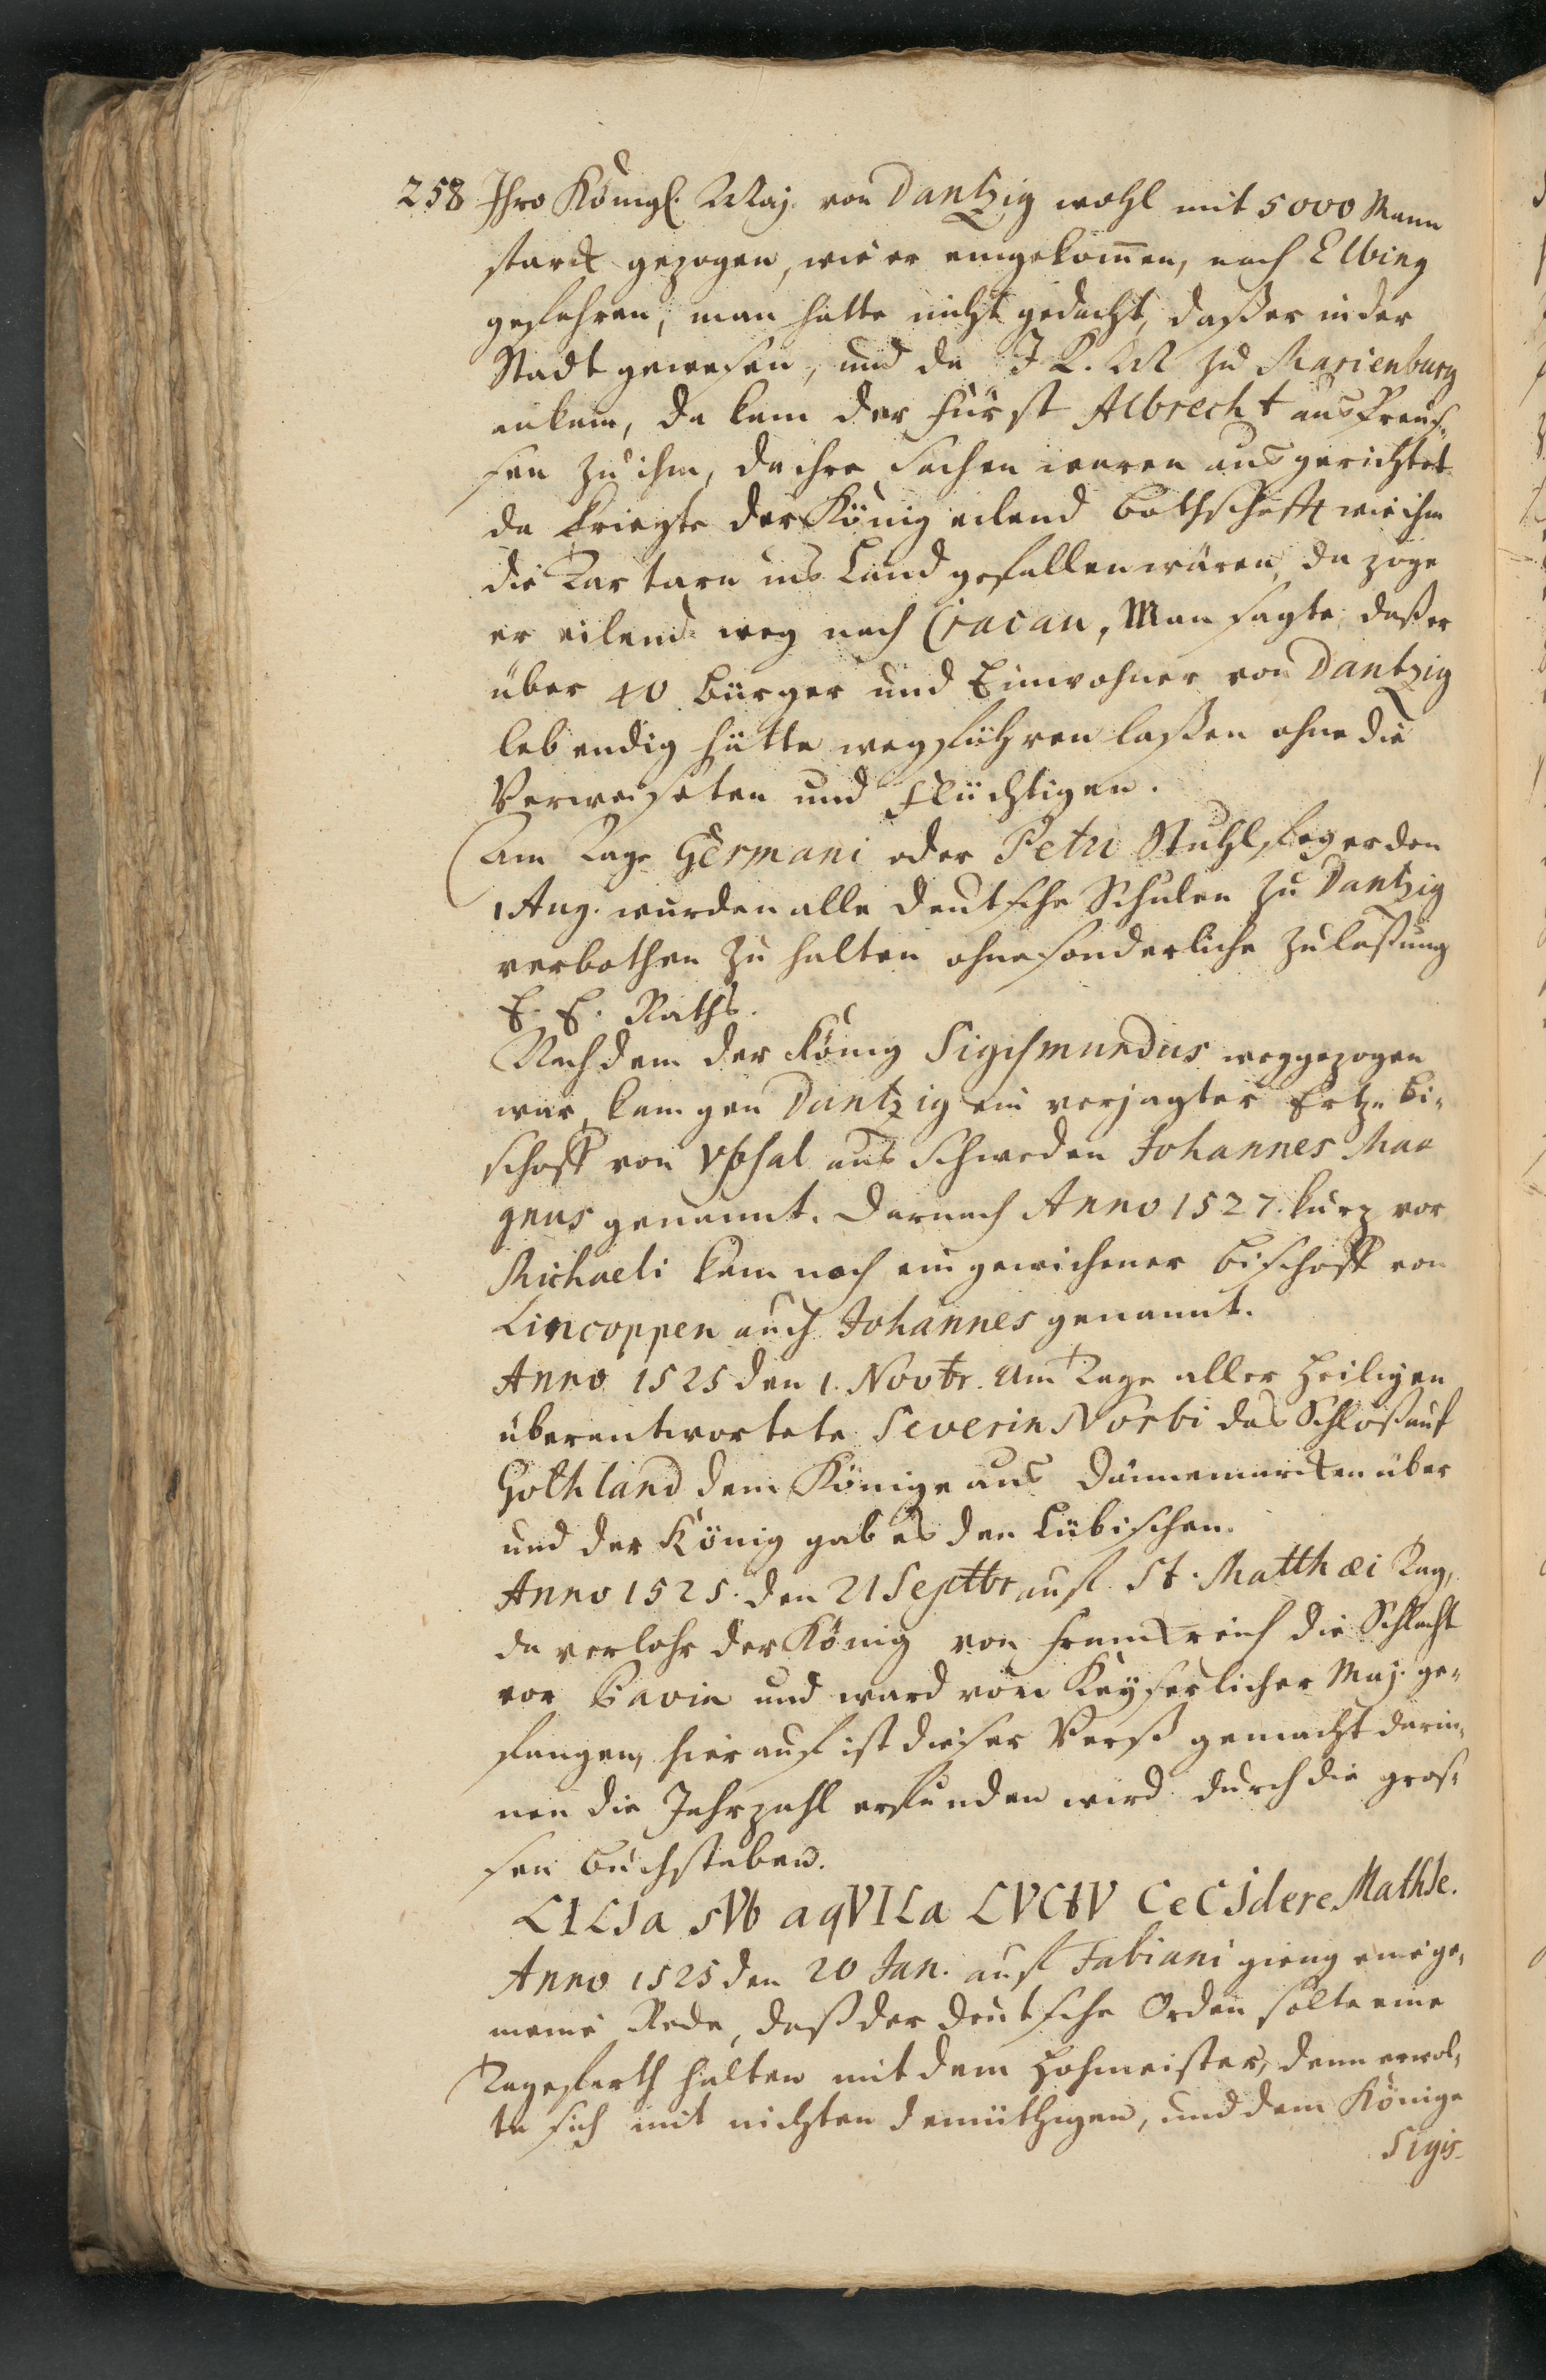 258 Ihro Königl. Maj. von Dantzig wohl mit 5000 Mann
starck gezogen, wie er eingekom̅en, nach Elbing
gefahren, man hätte nicht gedacht, daß er in der
Stadt gewesen, und da I K. M zu Marienburg
ankam, da kam der Fürst Albrecht aus Preus¬
sen zu ihm, da ihre Sachen waren ausgerichtet
da kriegte der König eilend Bothschafft wie ihm
die Tartarn ins Land gefallen wären, da zoge
er eilend weg nach Cracau, Man sagte, daß er
über 40 Bürger und Einwohner von Dantzig
lebendig hätte wegführen laßen ohne die
Verweiseten und Flüchtigen.
Am Tage Germani oder Petri Stuhlfeyer den
1 Aug. wurden alle deutsche Schulen zu Dantzig
verbothen zu halten ohne sonderliche Zulaßung
E. E. Raths.
Nachdem der König Sigismundus weggezogen
war, kam gen Dantzig ein verjagter Ertz-Bi¬
schoff von Upsal aus Schweden Johannes Ma
gnus genannt. Darnach Anno 1527. kurz vor
Michaeli kam noch ein gewichener Bischoff von
Lincoppen auch Johannes genannt.
Anno 1525 den 1. Novbr. Am Tage aller Heiligen
überantwortete Severin Norbi das Schloß auf
Gothland dem Könige aus Dännemarcken über
und der König gab es den Lübischen.
Anno 1525. den 21 Septbr auf St. Matthæi Tag,
da verlohr der König von Franckreich die Schlacht
vor Pavia und ward von Kayserlicher Maj. ge¬
fangen, hierauf ist dieser Verß gemacht darin¬
nen die Jahrzahl erfunden wird durch die gros¬
sen Buchstaben.
LILIa sVb aqVILa LVCtV CeCIdere MathIe.
Anno 1525 den 20 Jan. auf Fabiani gieng eine ge¬
meine Rede, daß der deutsche Orden solte eine
Tagefarth halten mit dem Hohmeister, denn er wol¬
te sich mit nichten demüthigen, und dem Könige
Sigis-